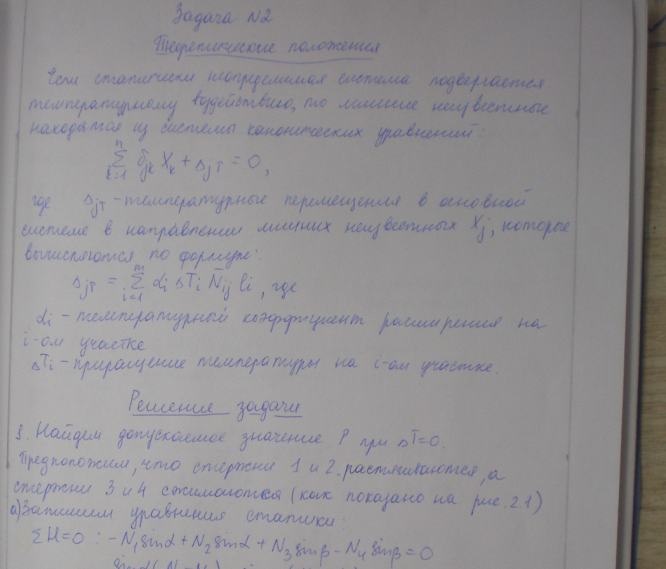 Задача N2
Теоретические положения
Если статически неопределимая система подвергается
температурному воздействию, то лишние неизвестные
находятся из системы канонических уравнений:
n∑k=1 δjk Xk + ΔjT = 0,
где ΔjT - температурные перемещения в основной
системе в направлении лишних неизвестных Xj, которые
вычисляются по формуле:
ΔjT = m∑i=1 αi ΔTi N̄ij li, где
αi - температурный коэффициент расширения на
i-ом участке
ΔTi - приращение температуры на i-ом участке.
Решение задачи
1. Найдем допускаемое значение P при ΔT=0.
Предположим, что стержни 1 и 2 растягиваются, а
стержни 3 и 4 сжимаются (как показано на рис. 2.1)
а) Запишем уравнения статики:
ΣH=0 : -N1 sinα + N2 sinα + N3 sinβ - N4 sinβ = 0